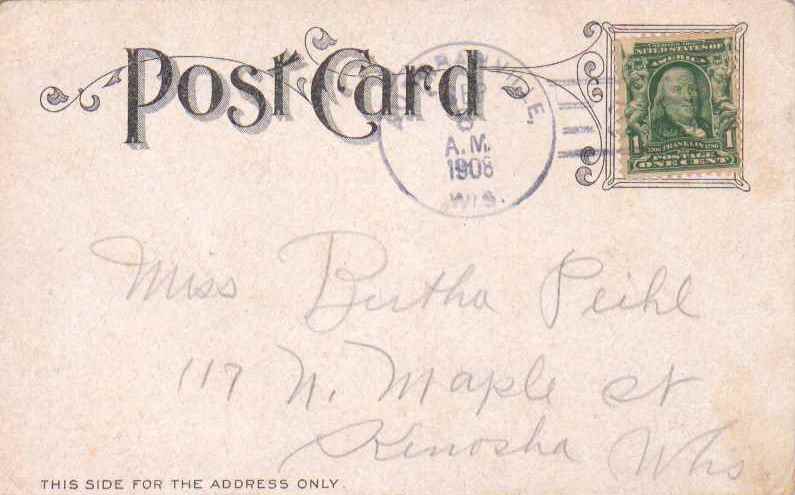 Post Card
A.M.
1908
WIS.
UNITED STATES OF
AMERICA
1 FRANKLIN 1
POSTAGE
ONE CENT
Miss Bertha Peihl
117 N. Maple St
Kenosha Whs
THIS SIDE FOR THE ADDRESS ONLY.